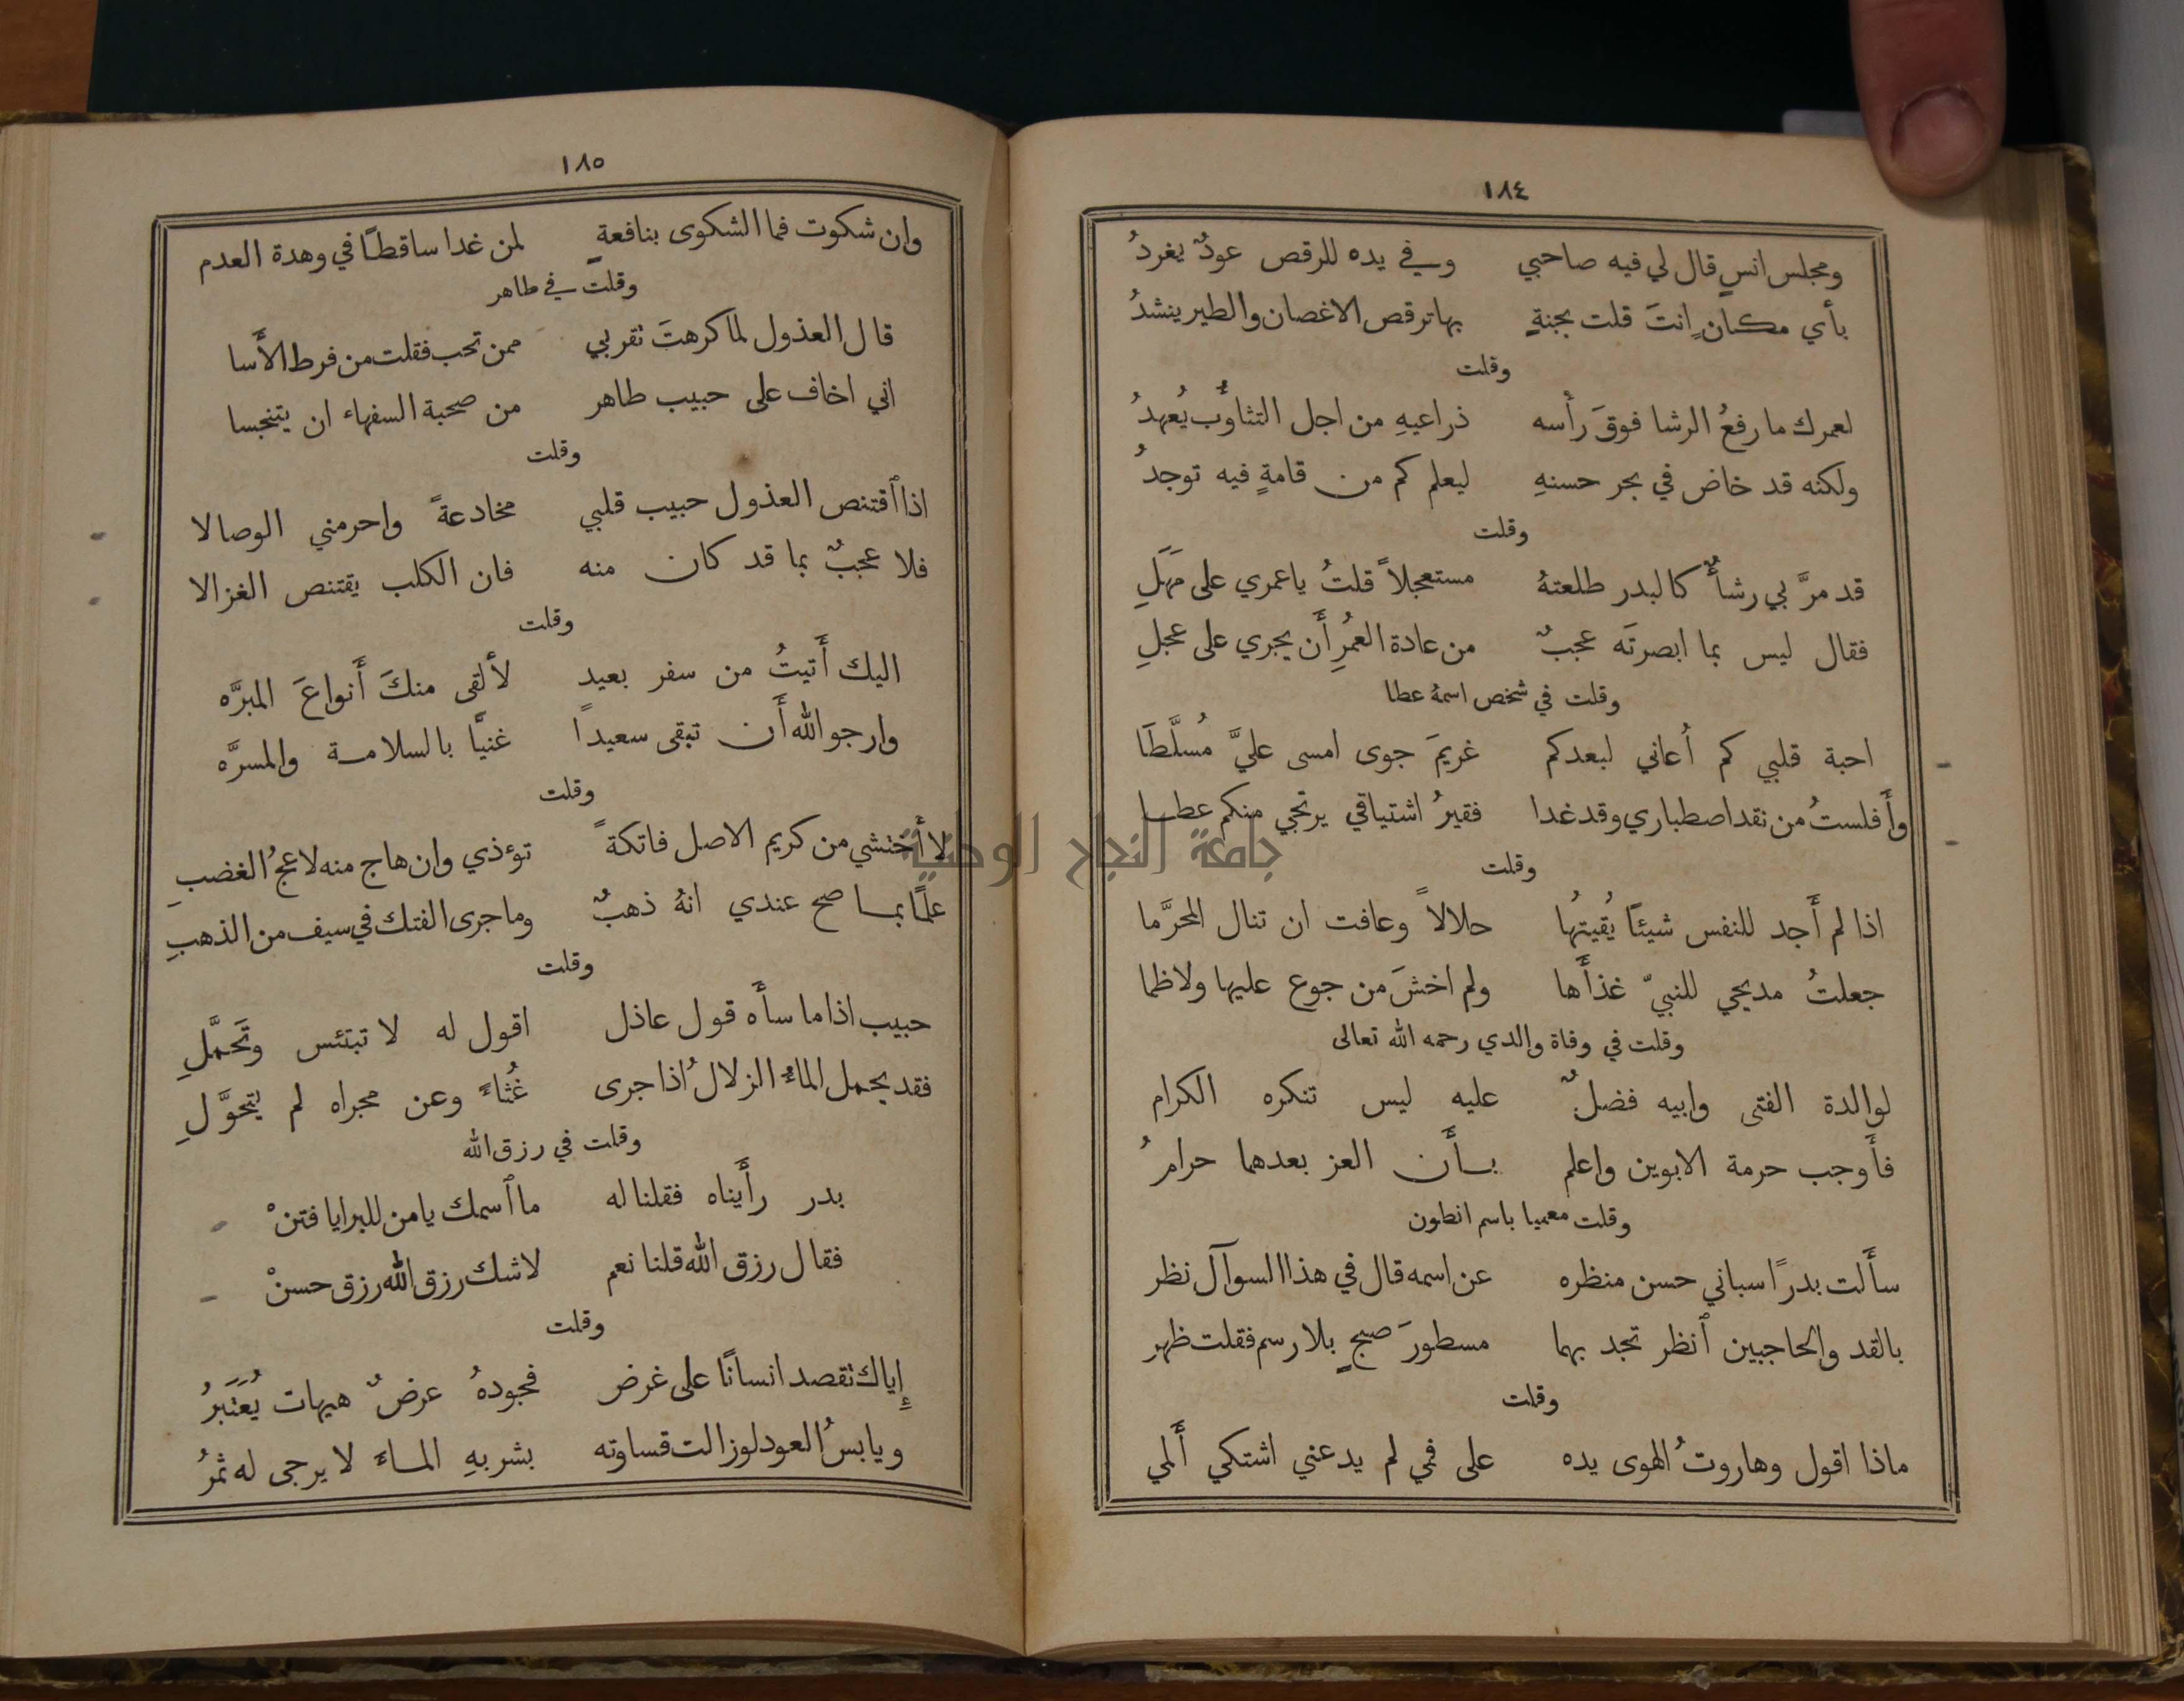 ١٨٤
ومجلس انسٍ قال لي فيه صاحبي وفي يده للرقص عودٌ يغردُ
بأي مكانٍ انتَ قلت بجنةٍ بها ترقص الاغصان والطير ينشدُ
وقلت
لعمرك ما رفعُ الرشا فوقَ رأسه ذراعيهِ من اجل التثاوُّب يُعهدُ
ولكنه قد خاض في بحر حسنهِ ليعلم كم من قامةٍ فيه توجدُ
وقلت
قد مرَّ بي رشأٌ كالبدر طلعتهُ مستعجلاً قلتُ ياعمري على مَهَلِ
فقال ليس بما ابصرتَه عجبٌ من عادة العمُرِ أَن يجري على عجلِ
وقلت في شخص اسمهُ عطا
احبة قلبي كم أُعاني لبعدكم غريمَ جوى امسى عليَّ مُسلَّطَا
وأَفلستُ من نقد اصطباري وقد غدا فقيرُ اشتياقي يرتجي منكم عطا
وقلت
اذا لم أَجد للنفس شيئًا يُقيتهُا حلالاً وعافت ان تنال المحرَّما
جعلتُ مديحي للنبيّ غذأَها ولم اخشَ من جوع عليها ولا ظما
وقلت في وفاة والدي رحمه الله تعالى
لوالدة الفتى وابيه فضلٌ عليه ليس تنكره الكرام
فأَوجب حرمة الابوين واعلم بأَن العز بعدهما حرامُ
وقلت معميا باسم انطون
سأَلت بدرًا سباني حسن منظره عن اسمه قال في هذا السوآل نظر
بالقد والحاجبين ٱنظر تجد بهما مسطورَ صبحٍ بلا رسم فقلت ظهر
وقلت
ماذا اقول وهاروتُ الهوى يده على فمي لم يدعني اشتكي أَلمي
١٨٥
وان شكوت فما الشكوى بنافعةٍ لمن غدا ساقطًا في وهدة العدم
وقلت في طاهر
قال العذول لما كرهتَ تقربي ممن تحب فقلت من فرط الأَسا
اني اخاف على حبيب طاهر من صحبة السفهاء ان يتنجسا
وقلت
اذا ٱقتنص العذول حبيب قلبي مخادعةً واحرمني الوصالا
فلا عجبٌ بما قد كان منه فان الكلب يقتنص الغزالا
وقلت
اليك أَتيتُ من سفر بعيد لأَلقى منكَ أَنواعَ المبرَّه
وارجو الله أَن تبقى سعيداً غنيًّا بالسلامة والمسرَّه
وقلت
لا أَختشي من كريم الاصل فاتكةً تؤذي وان هاج منه لاعجُ الغضبِ
علمًا بما صح عندي انهُ ذهبٌ وما جرى الفتك في سيف من الذهبِ
وقلت
حبيب اذا ما سأَه قول عاذل اقول له لا تبتئس وتَحمَّلِ
فقد يحمل الماءُ الزلالُ اذا جرى غُثاءً وعن مجراه لم يتحوَّلِ
وقلت في رزق الله
بدر رأَيناه فقلنا له ما ٱسمك يا من للبرايا فتنْ
فقال رزق الله قلنا نعم لاشك رزق الله رزق حسنْ
وقلت
إِياك تقصد انسانًا على غرض فجودهُ عرضٌ هيهات يُعتَبَرُ
ويابسُ العود لوزالت قساوته بشربهِ الماءَ لا يرجى له ثمرُ
جامعة النجاح الوطنية